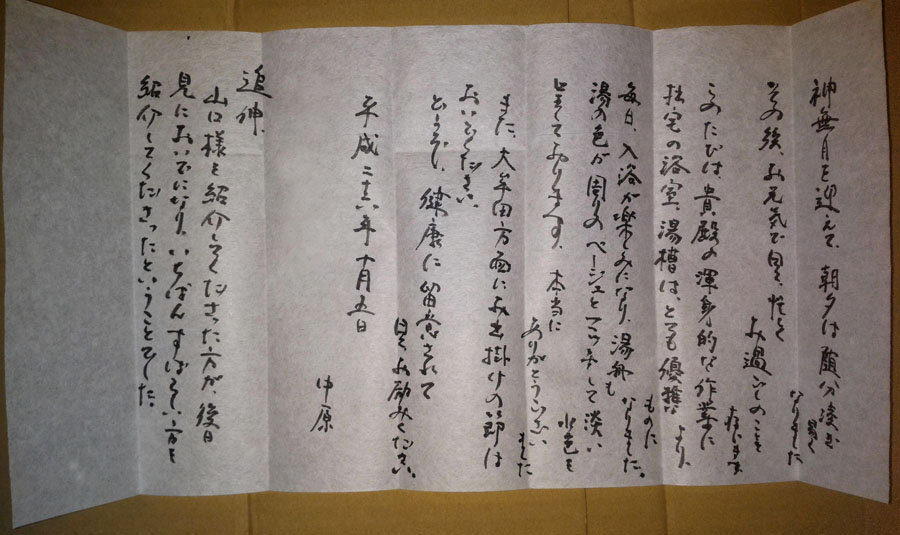 神無月を迎えて、朝夕は随分凌ぎ
易く
なりました
その後、お元気で日々、忙しく
お過しのことと
存じます
このたびは、貴殿の渾身的な作業に
より、
拙宅の浴室、湯槽は、とても優雅な
ものに
なりました。
毎日、入浴が楽しみになり、湯舟も
湯の色が周りのベージュとマッチして淡い
水色を
しております。本当に
ありがとうござい
ました
また、大牟田方面にお出掛けの節は
おいでください。
どうぞ、健康に留意されて
日々お励みください。
平成二十六年十月五日
中原
追伸、
山口様を紹介してくださった方が、後日
見においでになり、いちばんすばらしい方を
紹介してくださったということでした。